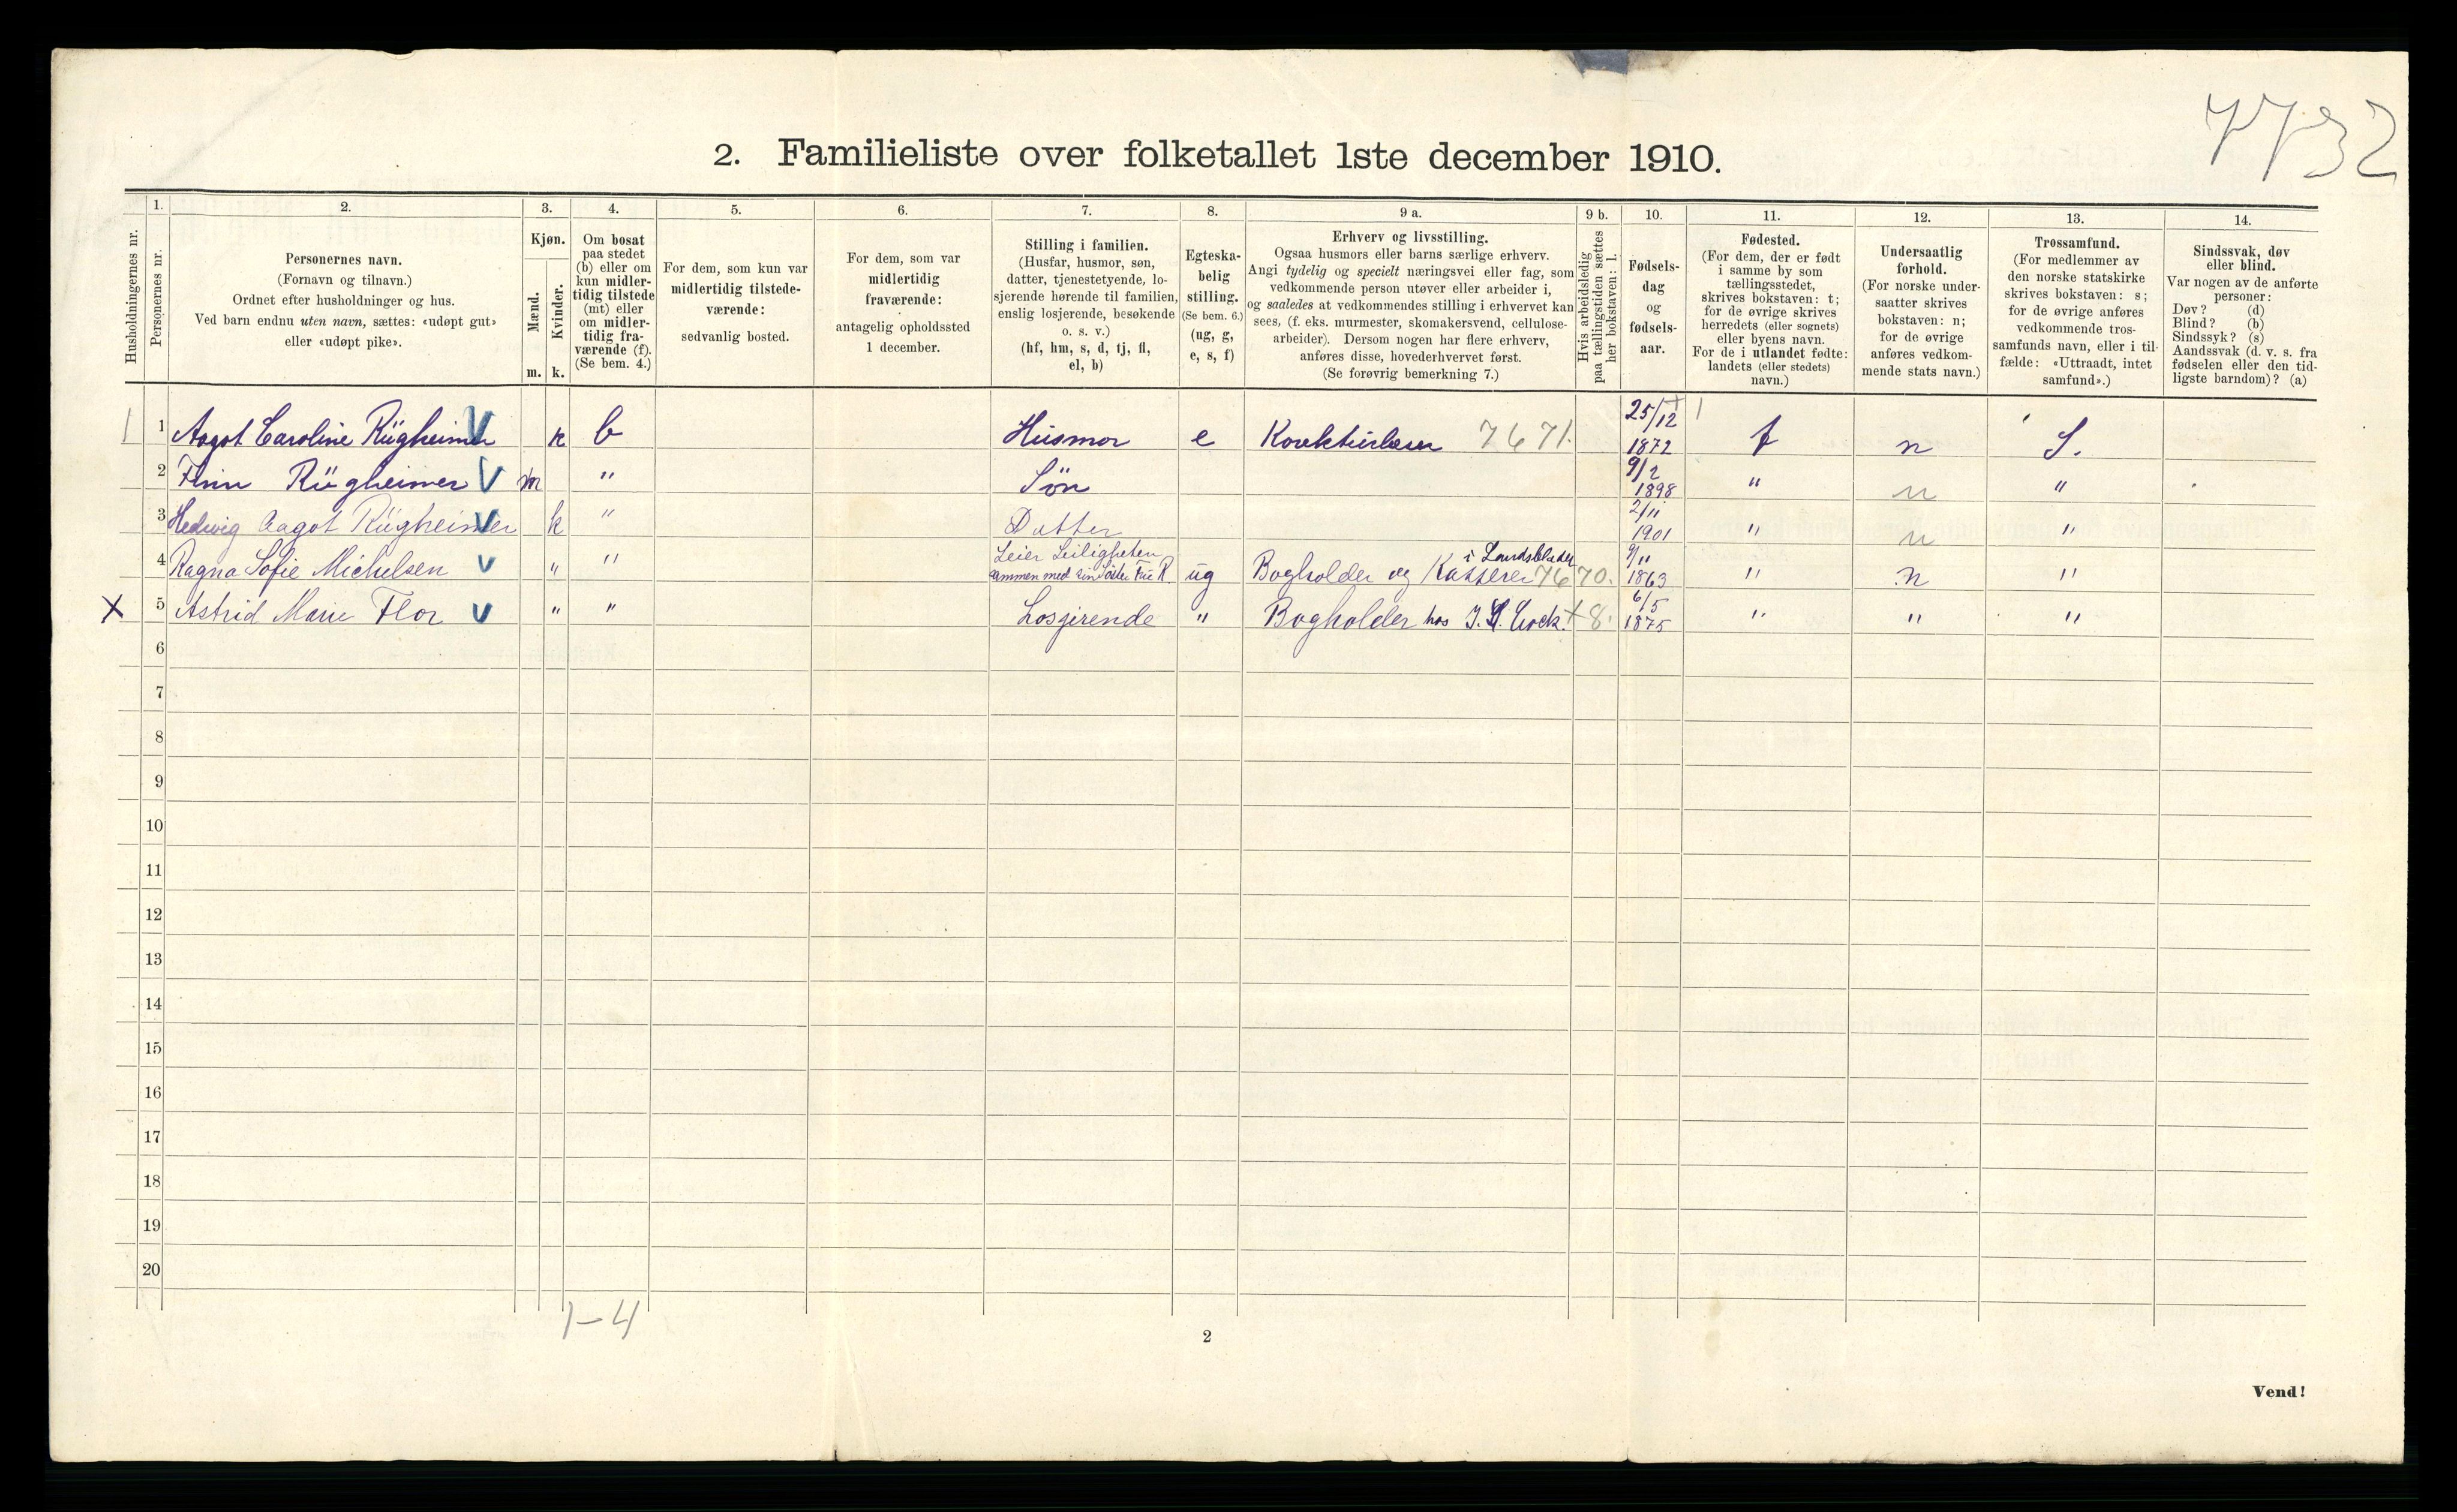 7732
2. Familieliste over folketallet 1ste december 1910.
Husholdningernes nr.
1.
Personernes nr.
2.
Personernes navn.
(Fornavn og tilnavn.)
Ordnet efter husholdninger og hus.
Ved barn endnu uten navn, sættes: «udøpt gut»
eller «udøpt pike».
3.
Kjøn.
Mænd.
m.
Kvinder.
k.
4.
Om bosat
paa stedet
(b) eller om
kun midler-
tidig tilstede
(mt) eller
om midler-
tidig fra-
værende (f).
(Se bem. 4.)
5.
For dem, som kun var
midlertidig tilstede-
værende:
sedvanlig bosted.
6.
For dem, som var
midlertidig
fraværende:
antagelig opholdssted
1 december.
7.
Stilling i familien.
(Husfar, husmor, søn,
datter, tjenestetyende, lo-
sjerende hørende til familien,
enslig losjerende, besøkende
o. s. v.)
(hf, hm, s, d, tj, fl,
el, b)
8.
Egteska-
belig
stilling.
(Se bem. 6.)
(ug, g,
e, s, f)
9 a.
Erhverv og livsstilling.
Ogsaa husmors eller barns særlige erhverv.
Angi tydelig og specielt næringsvei eller fag, som
vedkommende person utøver eller arbeider i,
og saaledes at vedkommendes stilling i erhvervet kan
sees, (f. eks. murmester, skomakersvend, cellulose-
arbeider). Dersom nogen har flere erhverv,
anføres disse, hovederhvervet først.
(Se forøvrig bemerkning 7.)
9 b.
Hvis arbeidsledig
paa tællingstiden sættes
her bokstaven: l.
10.
Fødsels-
dag
og
fødsels-
aar.
11.
Fødested.
(For dem, der er født
i samme by som
tællingsstedet,
skrives bokstaven: t;
for de øvrige skrives
herredets (eller sognets)
eller byens navn.
For de i utlandet fødte:
landets (eller stedets)
navn.)
12.
Undersaatlig
forhold.
(For norske under-
saatter skrives
bokstaven: n;
for de øvrige
anføres vedkom-
mende stats navn.)
13.
Trossamfund.
(For medlemmer av
den norske statskirke
skrives bokstaven: s;
for de øvrige anføres
vedkommende tros-
samfunds navn, eller i til-
fælde: «Uttraadt, intet
samfund».)
14.
Sindssvak, døv
eller blind.
Var nogen av de anførte
personer:
Døv? (d)
Blind? (b)
Sindssyk? (s)
Aandssvak (d. v. s. fra
fødselen eller den tid-
ligste barndom)? (a)
1 1 Aagot Caroline Rügheimer V k b Husmor e Korekturlæser 7671. 25/12 1872 t n S.
2 Finn Rügheimer V m " Søn 9/2 1898 " n "
3 Hedwig Aagot Rügheimer V k " Datter 2/11 1901 " n "
4 Ragna Sofie Michelsen V " " Leier Leiligheten sammen med sin Söster Fru R. ug Bogholder og Kasserer i Landsbladet 7670. 9/11 1863 " n "
X 5 Astrid Marie Flor V " " Losjerende " Bogholder hos + 8. 6/5 1875 " " "
6
7
8
9
10
11
12
13
14
15
16
17
18
19
20
1-4
2
Vend!